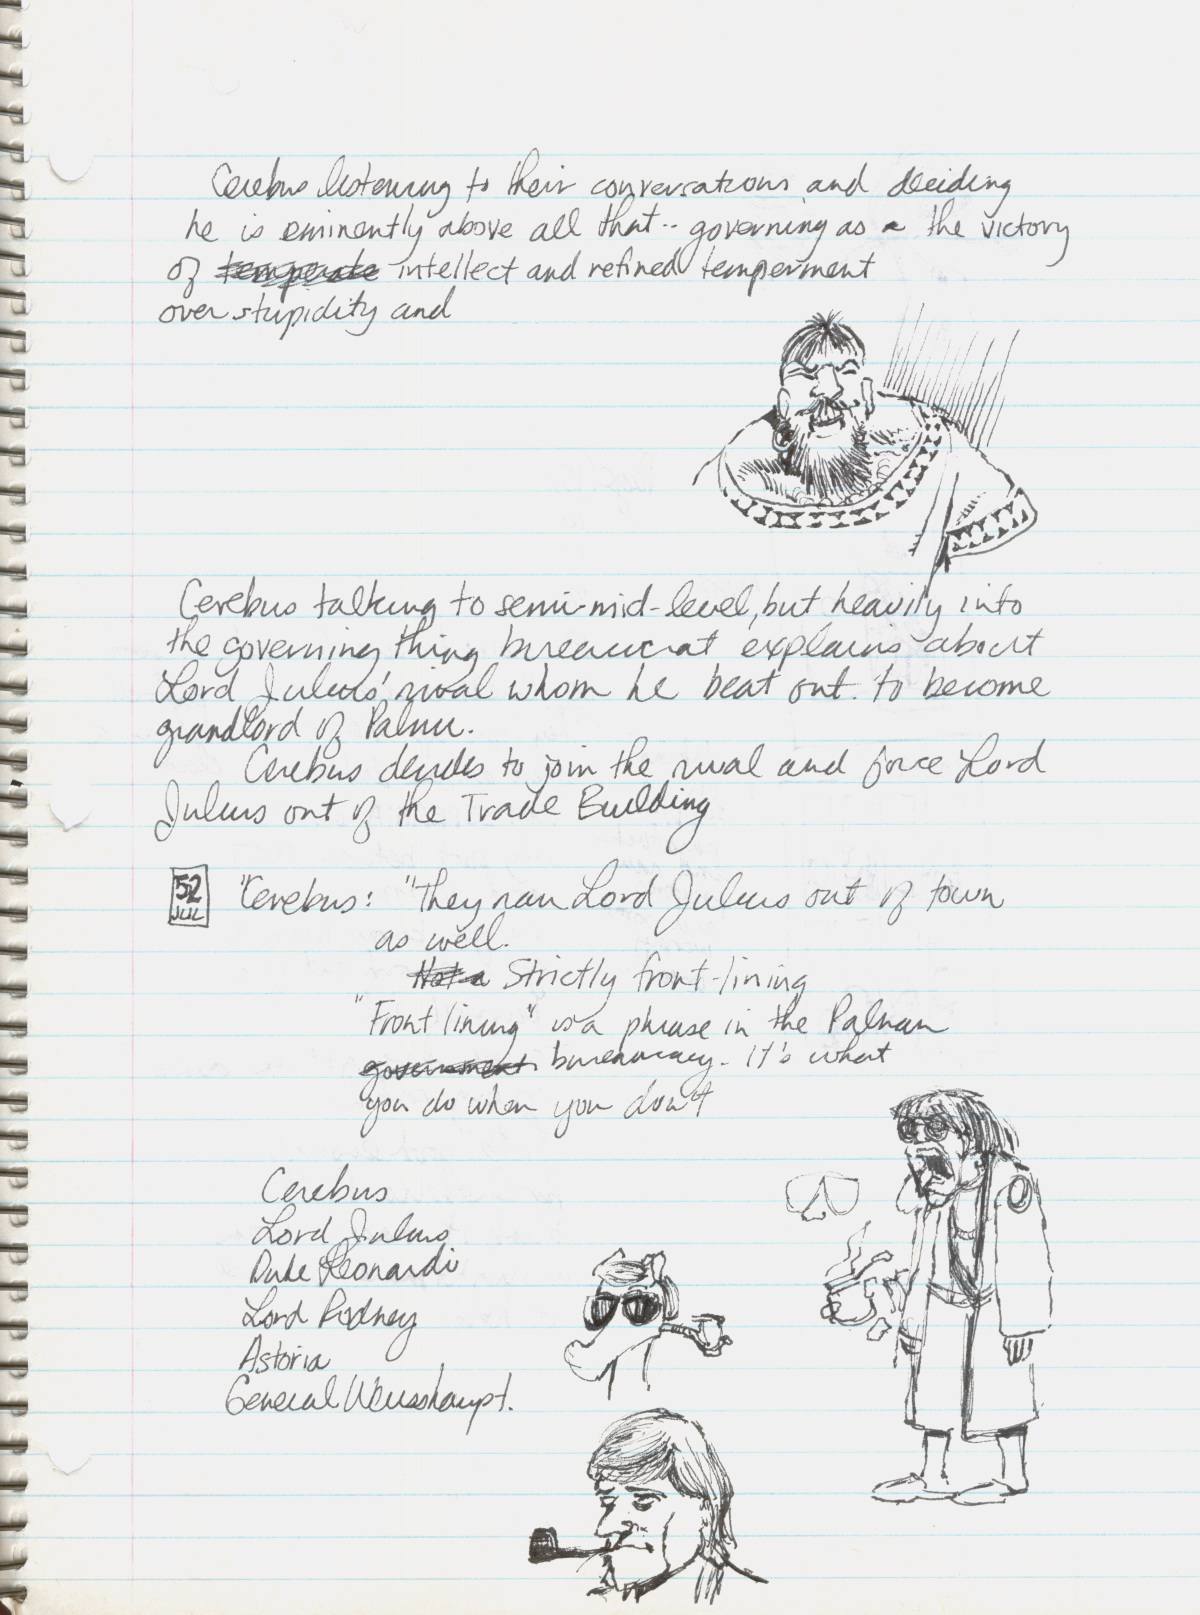 Cerebus listening to their conversations and deciding
he is eminently above all that.. governing as a the victory
of temperate intellect and refined temperment
over stupidity and
Cerebus talking to semi-mid-level, but heavily into
the governing thing bureaucrat explains about
Lord Julius' rival whom he beat out to become
grandlord of Palnu.
Cerebus decides to join the rival and force Lord
Julius out of the Trade Building
52
JUL
"Cerebus: "They ran Lord Julius out of town
as well.
Not a Strictly front-lining
"Front lining" is a phrase in the Palnan
government bureaucracy. It's what
you do when you don't
Cerebus
Lord Julius
Duke Leonardi
Lord Rodney
Astoria
General Weisshaupt.